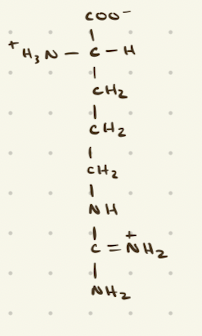 COO⁻
⁺H₃N – C – H
CH₂
CH₂
CH₂
NH
C = ⁺NH₂
NH₂